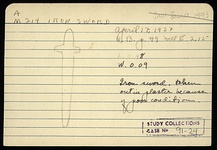 A
M 214 IRON SWORD
April 17, 1927
W. 0.09
Iron sword. Taken
out in plaster because
of poor condition.
STUDY COLLECTIONS
CASE No 91-24